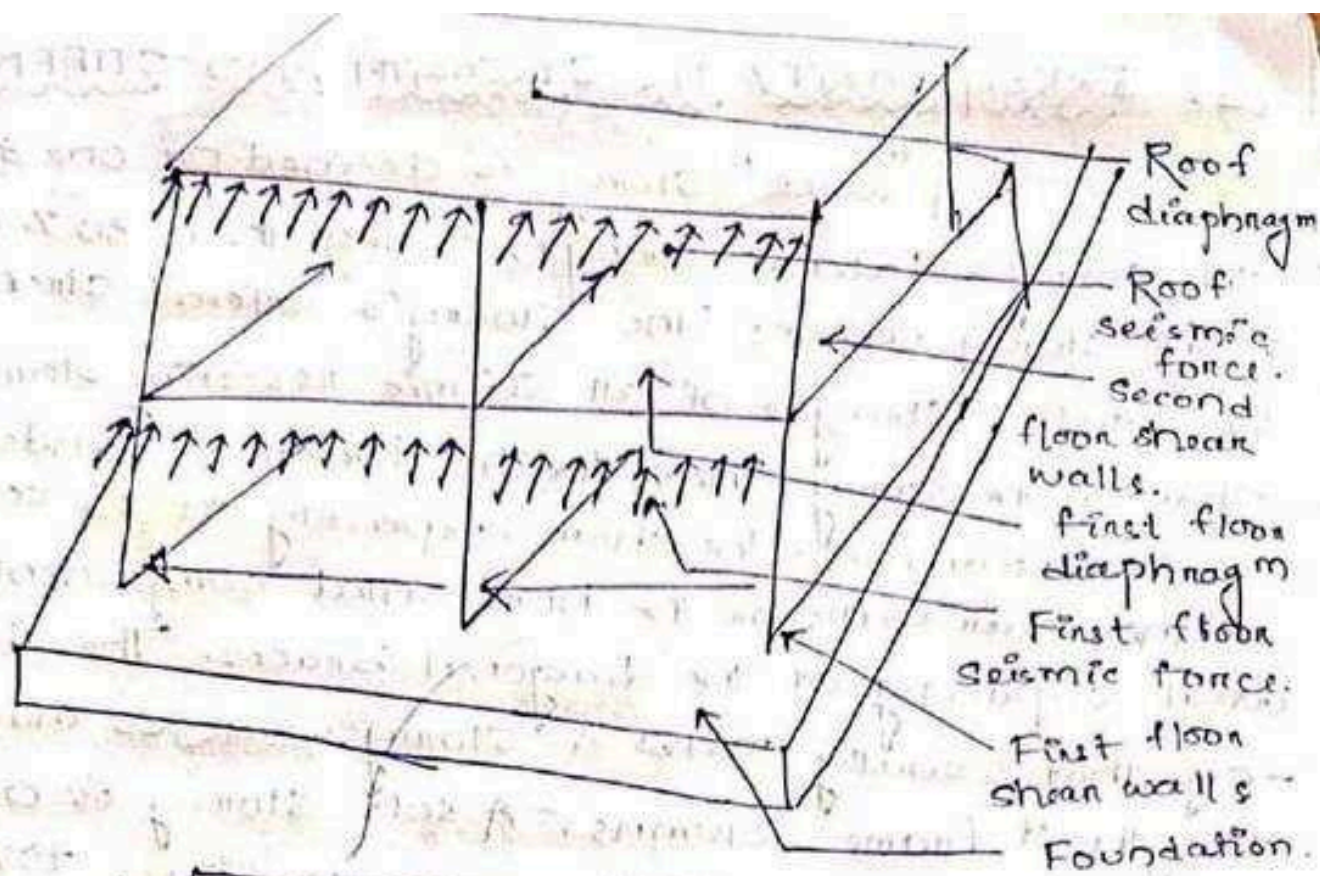 Roof
diaphragm
Roof
seismic
force.
Second
floor shear
walls.
first floor
diaphragm
First floor
Seismic force.
First floor
shear walls
Foundation.